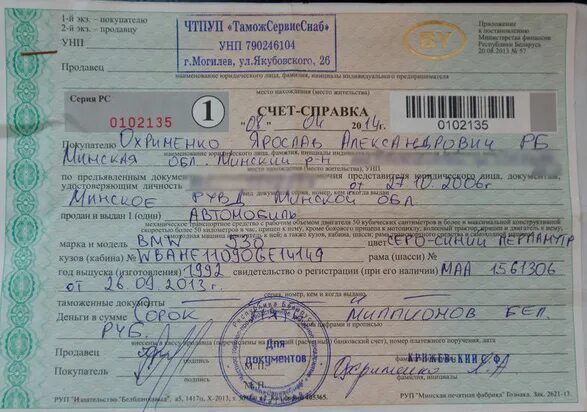 1-й экз. - покупателю
2-й экз. - продавцу
УНП
Продавец
ЧТПУП «ТаможСервисСнаб»
УНП 790246104
г.Могилев, ул.Якубовского, 26
BY
Приложение
к постановлению
Министерства финансов
Республики Беларусь
20.08.2013 № 57
наименование юридического лица, фамилия, инициалы индивидуального предпринимателя
место нахождения (место жительства)
Серия РС
0102135
1
СЧЕТ-СПРАВКА
"08" 04 2014г.
0102135
Покупателю Охрименко Ярослав Александрович РБ
Минская обл. Минский р-н
место нахождения (место жительства), УНП
по предъявленным документам
представителя юридического лица, документам,
удостоверяющим личность
от 27.10.2006г
Минское РУВД Минской обл.
продан и выдан 1 (один) Автомобиль
марка и модель BMW 530 цвет серо-синий перламутр
кузов (кабина) № WBAHE11090GE14149 рама (шасси) №
год выпуска (изготовления) 1992 свидетельство о регистрации (при его наличии) МАА 1561306
от 26.09.2013г.
серия, номер, кем и когда выдано
таможенные документы
номер, кем и когда выданы
Деньги в сумме Сорок миллионов бел.
цифрами и прописью
руб.
Продавец
подпись
М.П.
Кржевский
Покупатель
подпись
Охрименко
Республика Беларусь
Для документов
РУП "Издательство "Белбланкавыд".
РУП "Минская печатная фабрика" Гознака. Зак. 2621-13